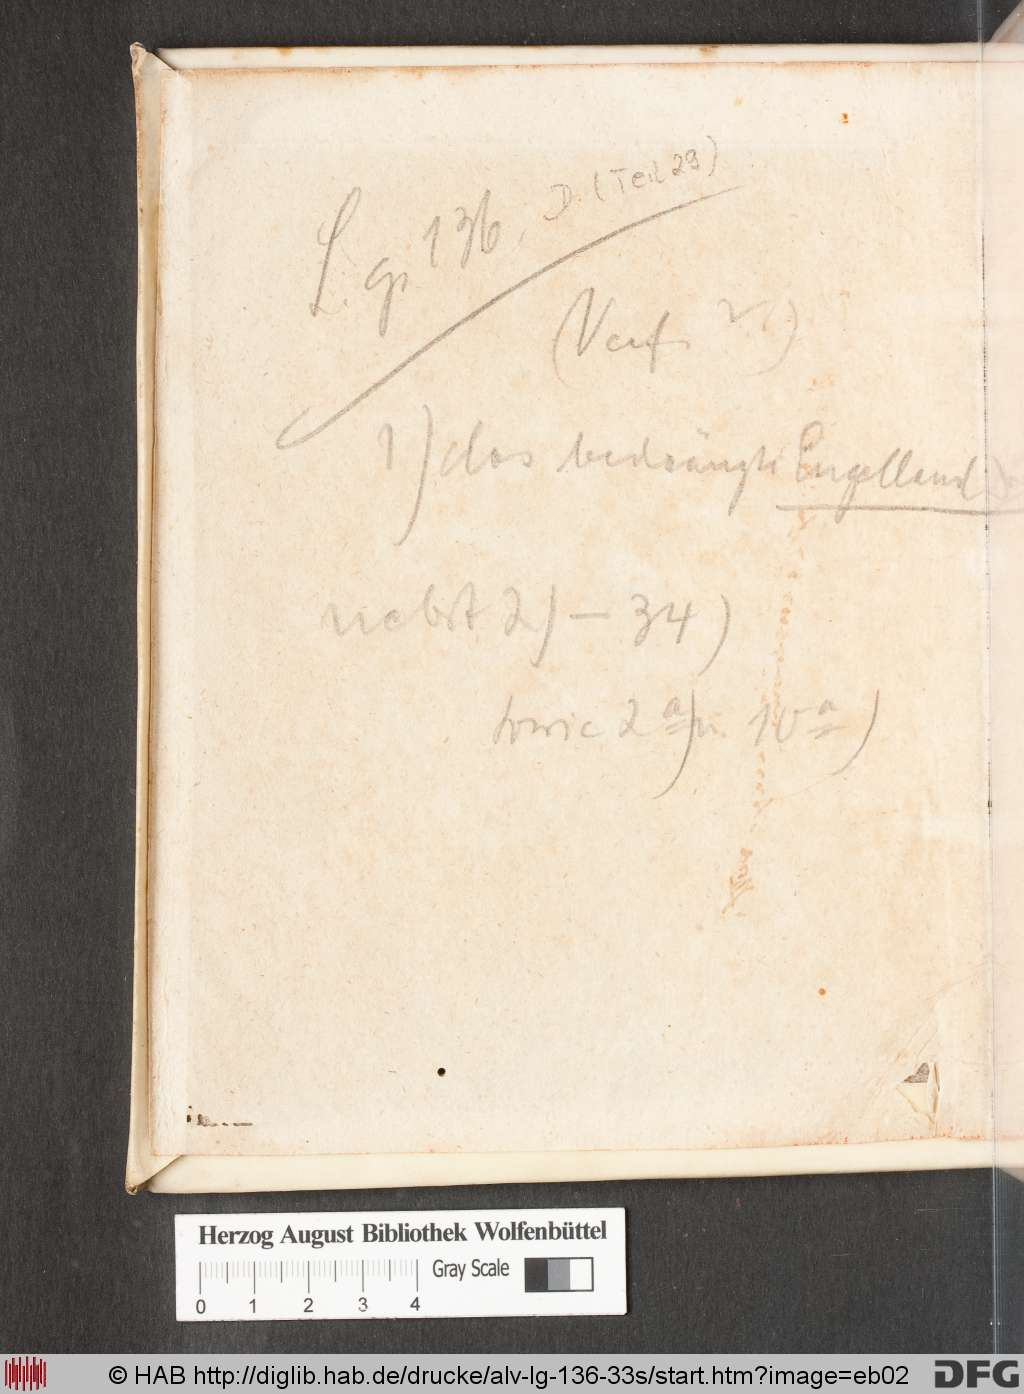 Lg. 136, D. (Teil 29)
(Verf. ?)
1) das bedrängte Engelland
nebst 2) – 34)
sowie 2a) u. 10a)
Herzog August Bibliothek Wolfenbüttel
Gray Scale
0 1 2 3 4
© HAB http://diglib.hab.de/drucke/alv-lg-136-33s/start.htm?image=eb02
DFG